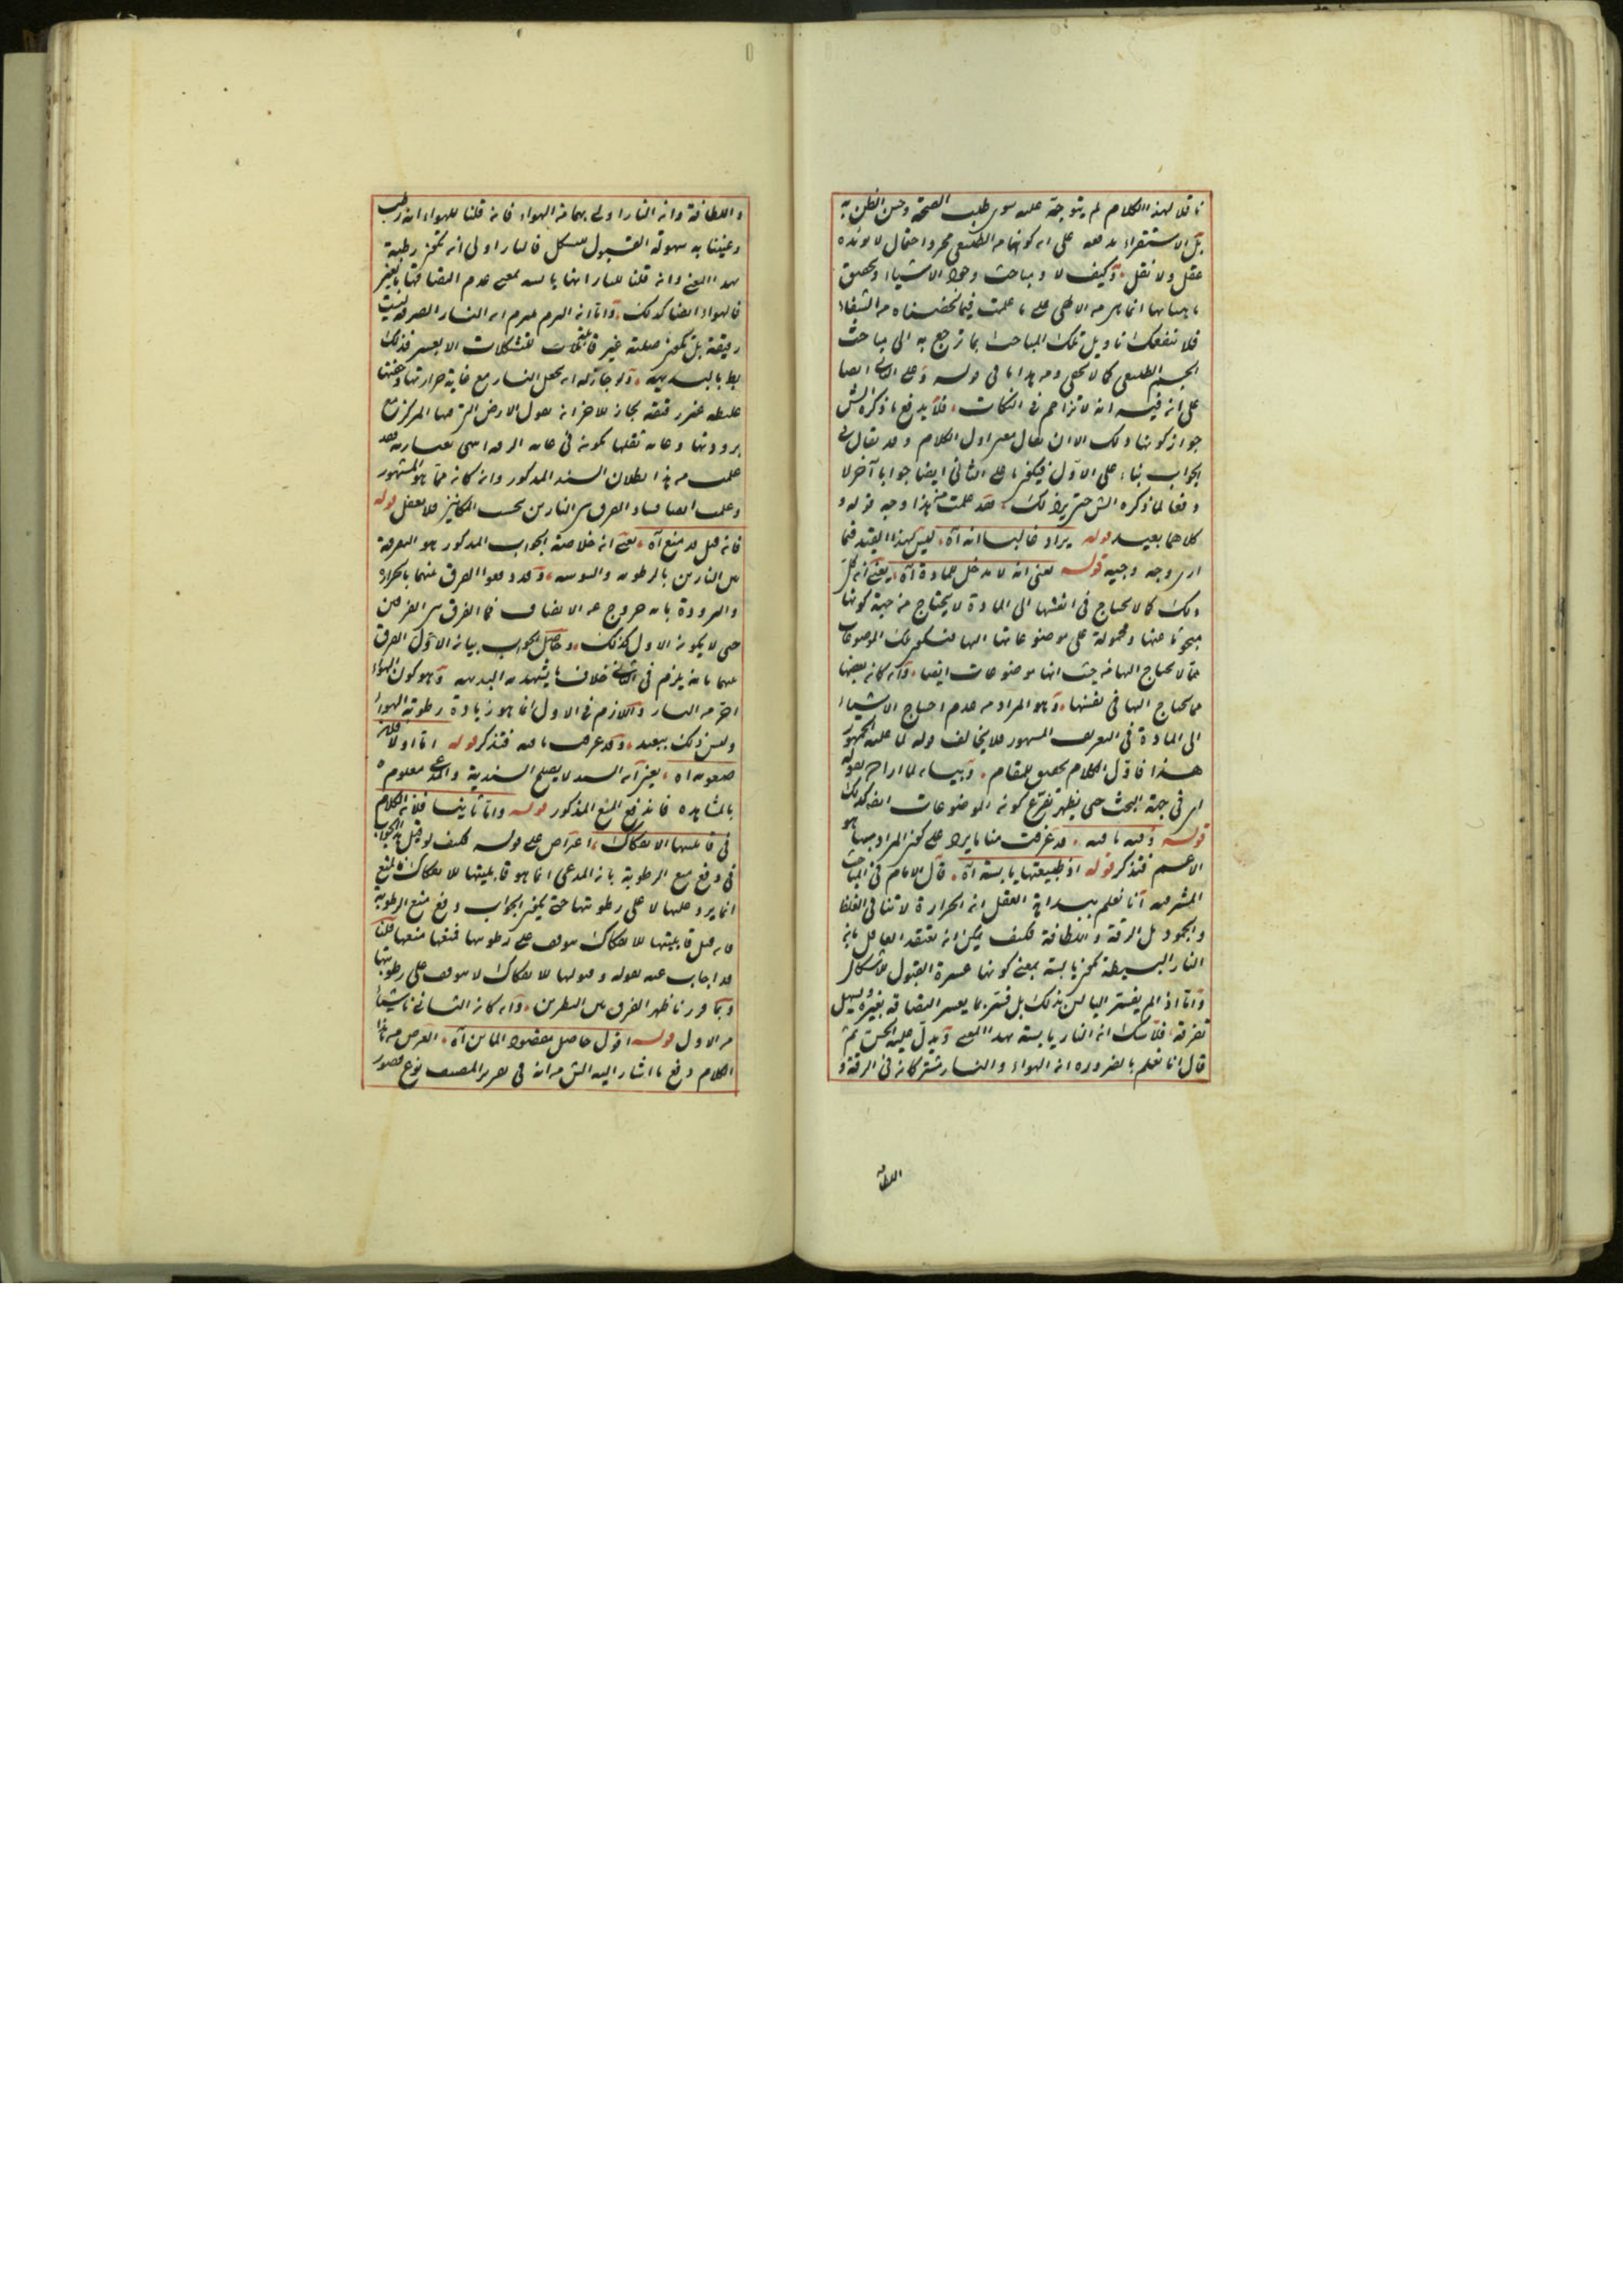 ناقلا لهذا الكلام لم يتوجه عليه سوى طلب الصحة وحسن الظن به
بل الاستقراء على ان كونها من الطبيعي مجرد احتمال لا يؤيده
عقل ولا نقل وكيف لا ومباحث وجود الاشياء وتحقيق
ماهياتها انما هي من الالهي على ما علمت فيما لخصناه من الشفاء
فلا تنفعك تاويل تلك المباحث بما ترجع به الى مباحث
الجسم الطبيعي كما لا يخفى ومن هذا ما في قوله وعلى الثاني ايضا
على انه فيه انه لا تزاحم في النكات فلا يدفع ما ذكره الش
جواز كونها الا ان يقال معنى اول الكلام وقد يقال في
الجواب بناء على الاول فيكون ما على الثاني ايضا جوابا آخر لا
دفعا لما ذكره الش حتى يرد ذلك فقد علمت من هذا وجه قوله و
كلاهما بعيد قوله يراد غالبا انه آه ليس لهذا القيد فيما
ارى وجه وجيه قوله يعنى انه لا مدخل للمادة آه يعني انه كل
ذلك كما لا يحتاج في انفسها الى المادة لا يحتاج من جهة كونها
مبحوثا عنها ومحمولة على موضوعاتها اليها فتكون تلك الموضوعات
مما لا يحتاج اليها من حيث انها موضوعات ايضا وان كانه بعضها
مما يحتاج اليها في نفسها وهو المراد من عدم احتياج الاشياء
الى المادة في التعريف المشهور فلا يخالف قوله لما عليه الجمهور
هذا فاول الكلام تحقيق للمقام وبيان لما اراد من قوله
اي في جهة البحث حتى يظهر تفرع كونه الموضوعات ايضا كذلك
قوله وفيه ما فيه قد عرفت منا ما يرد على كون المراد بها هو
الاعم فتذكر قوله اذ طبيعتها يابسة آه قال الامام في المباحث
المشرقية انا نعلم ببداية العقل انه الحرارة لا تنافي الغلظ
والجمود بل الرقة واللطافة فكيف يمكن انه يعتقد العاقل بانه
النار البسيطة تكون يابسة بمعنى كونها عسرة القبول للاشكال
واما اذا لم يفسر اليابس بذلك بل فسر بما يعسر التصاقه بغيره ويسهل
تفرقه فلا شك انه النار يابسة بهذا المعنى ويدل عليه الحس ثم
قال انا نعلم بالضرورة انه الهواء والنار مشتركانه في الرقة و
اللطافة
واللطافة وانه النار اولى بهما من الهواء فانه قلنا للهواء انه رطب
وعنينا به سهولة القبول للشكل فالنار اولى انه تكون رطبة
بهذا المعنى وانه قلنا للنار انها يابسة بمعنى عدم التصاقها بالغير
فالهواء ايضا كذلك واما انه النار الصرفة ليست
رقيقة بل تكون صلبة غير قابلة للتشكلات الا بعسر فذلك
بط بالبديهة ولو جاز له ان يجعل النار مع غاية حرارتها وخفتها
غليظة غير رقيقة لجاز للاخر انه يقول الارض التي عند المركز مع
برودتها وغاية ثقلها تكونه في غاية الرقة انتهى بعبارته فقد
علمت من هذا بطلان السند المذكور وانه كانه مما هو المشهور
وعلمت ايضا فساد الفرق بين النارين بحسب المكانين فلا تغفل قوله
فانه قيل قد منع آه يعنى انه خلاصة الجواب المذكور هو التفرقة
بين النارين بالرطوبة واليبوسة وقد دفعوا الفرق بينهما بالحرارة
والبرودة بانه خروج عن الانصاف فما الفرق بين الفرقين
حتى لا يكونه الاول كذلك وحاصل الجواب بيانه الاول الفرق
بينهما بانه يلزم في الثاني خلاف ما يشهد به البديهة وهو كون الهواء
احر من النار واللازم في الاول انما هو زيادة رطوبة الهواء
وليس ذلك ببعيد وقد عرفت ما فيه فتذكر قوله اما اولا فلانه
آه يعنى ان السند لا يصلح السندية والمدعى معلوم
بالمشاهده فاندفع المنع المذكور قوله واما ثانيا فلانه الكلام
في قابليتها الانفكاك اعتراض على قوله فكيف لو قيل هذا الجواب
في دفع منع الرطوبة بانه المدعى انما هو قابليتها للانفكاك فالمنع
انما يرد عليها لا على رطوبتها حتى يكون الجواب دفع منع الرطوبة
فانه قيل قابليتها للانفكاك موقوف على رطوبتها فمنعها منعها قلنا
قد اجاب عنه بقوله وقبولها للانفكاك لا موقوف على رطوبتها
وبما قررنا ظهر الفرق بين النظرين وانه كانه الثاني ناشيا
من الاول قوله اقول حاصل آه الغرض من هذا
الكلام دفع ما اشار اليه الش من انه في تحرير المصنف نوع قصور